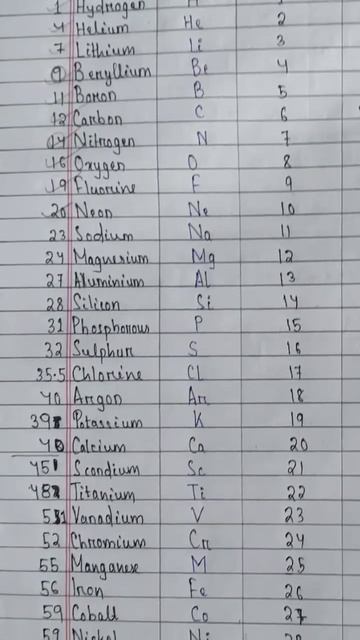 1 Hydrogen
4 Helium He 2
7 Lithium Li 3
9 Beryllium Be 4
11 Boron B 5
12 Carbon C 6
14 Nitrogen N 7
16 Oxygen O 8
19 Fluorine F 9
20 Neon Ne 10
23 Sodium Na 11
24 Magnesium Mg 12
27 Aluminium Al 13
28 Silicon Si 14
31 Phosphorous P 15
32 Sulphur S 16
35.5 Chlorine Cl 17
40 Argon Ar 18
39 Potassium K 19
40 Calcium Ca 20
45 Scandium Sc 21
48 Titanium Ti 22
51 Vanadium V 23
52 Chromium Cr 24
55 Manganese M 25
56 Iron Fe 26
59 Cobalt Co 27
59 Nickel Ni